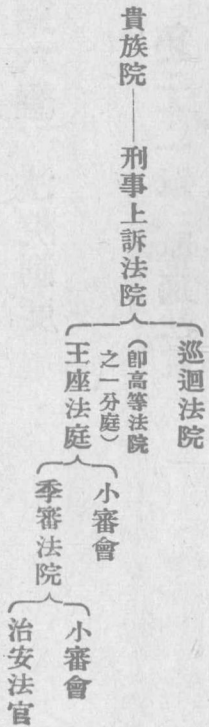 貴族院——刑事上訴法院
巡迴法院
(卽高等法院
之一分庭)
王座法庭
小審會
季審法院
小審會
治安法官